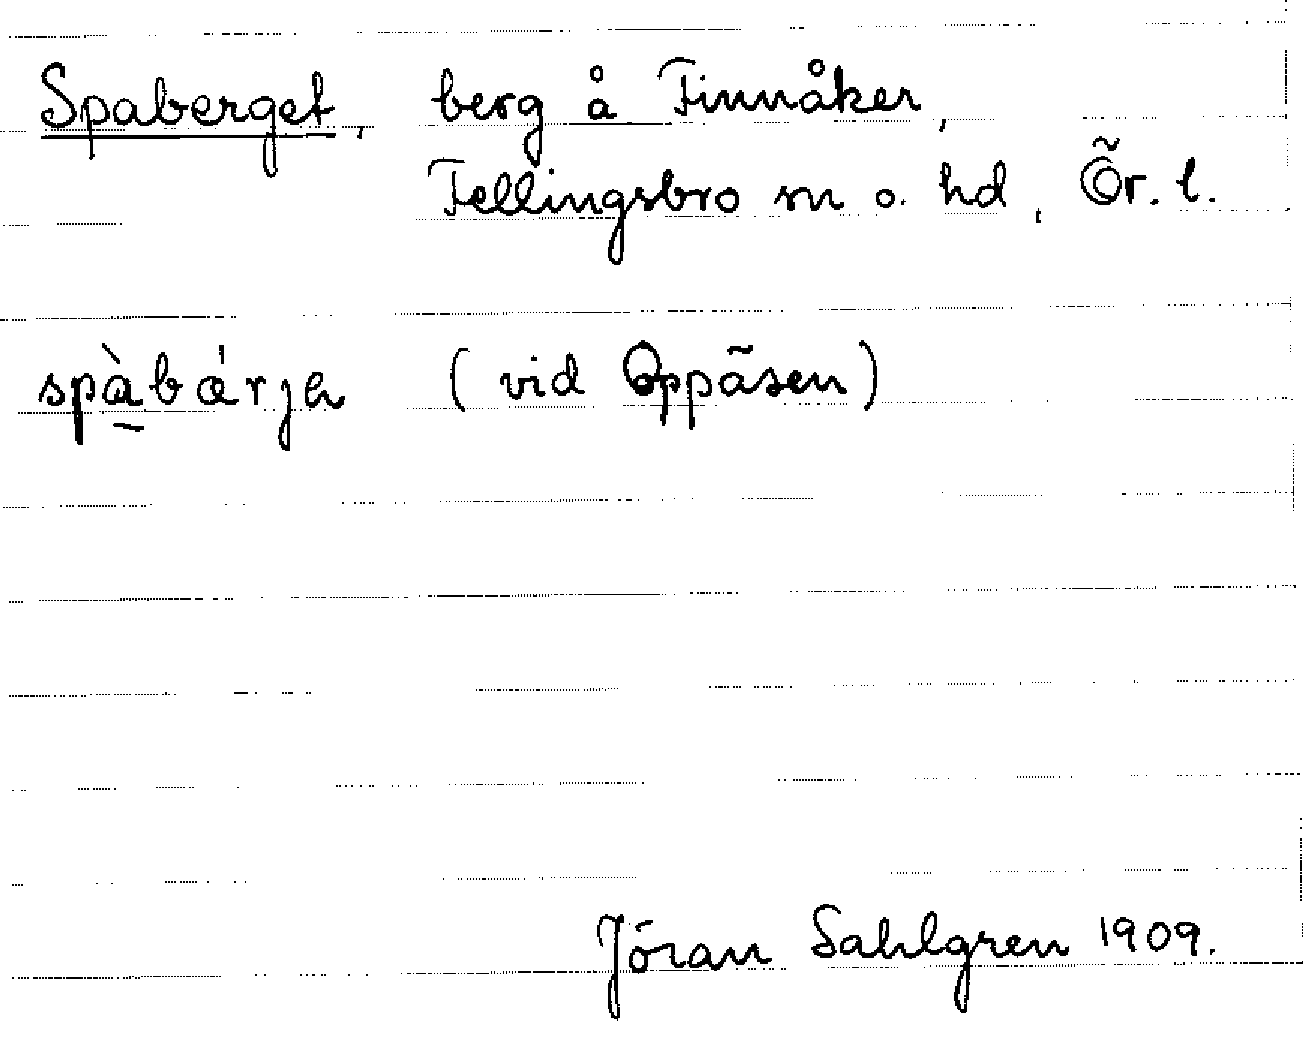 Spaberget, berg å Finnåker,
Fellingsbro sn o. hd, Ör. l.
spàbárje (vid Oppäsen)
Jöran Sahlgren 1909.